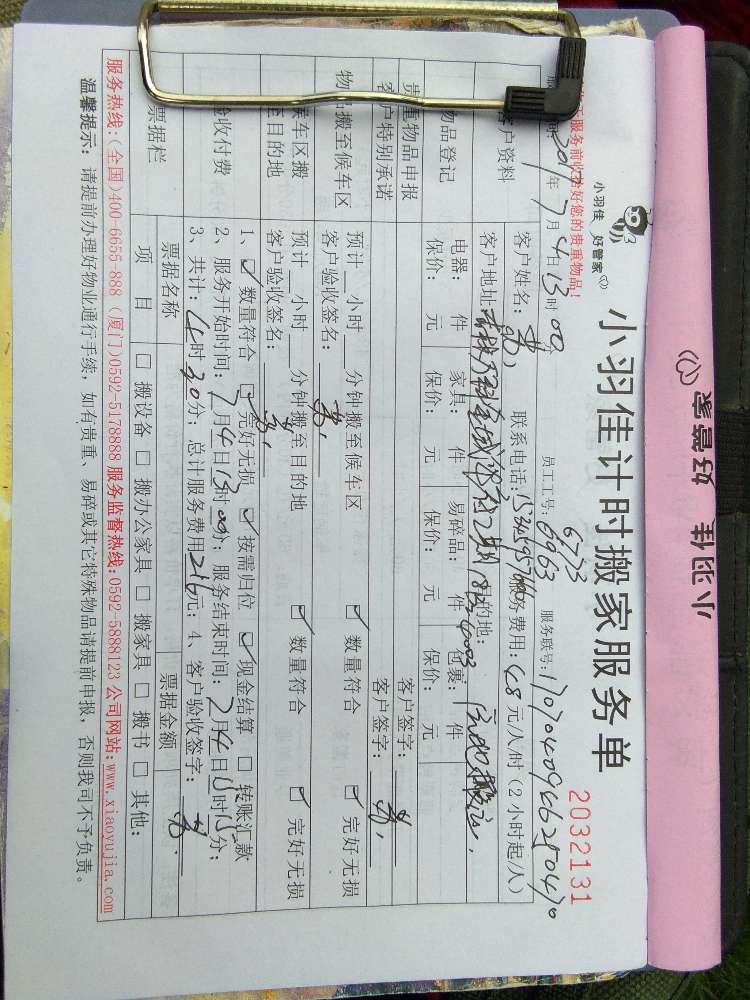 小羽佳 好管家
小羽佳 好管家
小羽佳计时搬家服务单
2032131
服务前收拾好您的贵重物品!
2017年7月4日13时00
员工工号: 6773 6963
服务联号: 1707040946250470
客户资料
客户姓名:
联系电话:
服务费用: 48元/人/时(2小时起/人)
客户地址:
目的地:
物品登记
电器: 件 家具: 件 易碎品: 件 包裹: 件
保价: 元 保价: 元 保价: 元 保价: 元
贵重物品申报
客户签字:
客户特别承诺
客户签字:
物品搬至候车区
预计__小时__分钟搬至候车区 ☑ 数量符合 ☑ 完好无损
客户验收签名:
候车区搬至目的地
预计__小时__分钟搬至目的地 ☑ 数量符合 ☑ 完好无损
客户验收签名:
验收付费
1、☑ 数量符合 ☑ 完好无损 ☑ 按需归位 ☑ 现金结算 □ 转账汇款
2、服务开始时间: 7月4日13时00分; 服务结束时间: 7月4日
3、共计: 4时30分; 总计服务费用216元; 4、客户验收签字:
票据栏
票据名称 票据金额
项目 □ 搬设备 □ 搬办公家具 □ 搬家具 □ 搬书 □ 其他:
服务热线:(全国)400-6655-888 (厦门)0592-5178888 服务监督热线:0592-5888123 公司网站:www.xiaoyujia.com
温馨提示: 请提前办理好物业通行手续,如有贵重、易碎或其它特殊物品请提前申报,否则我司不予负责。